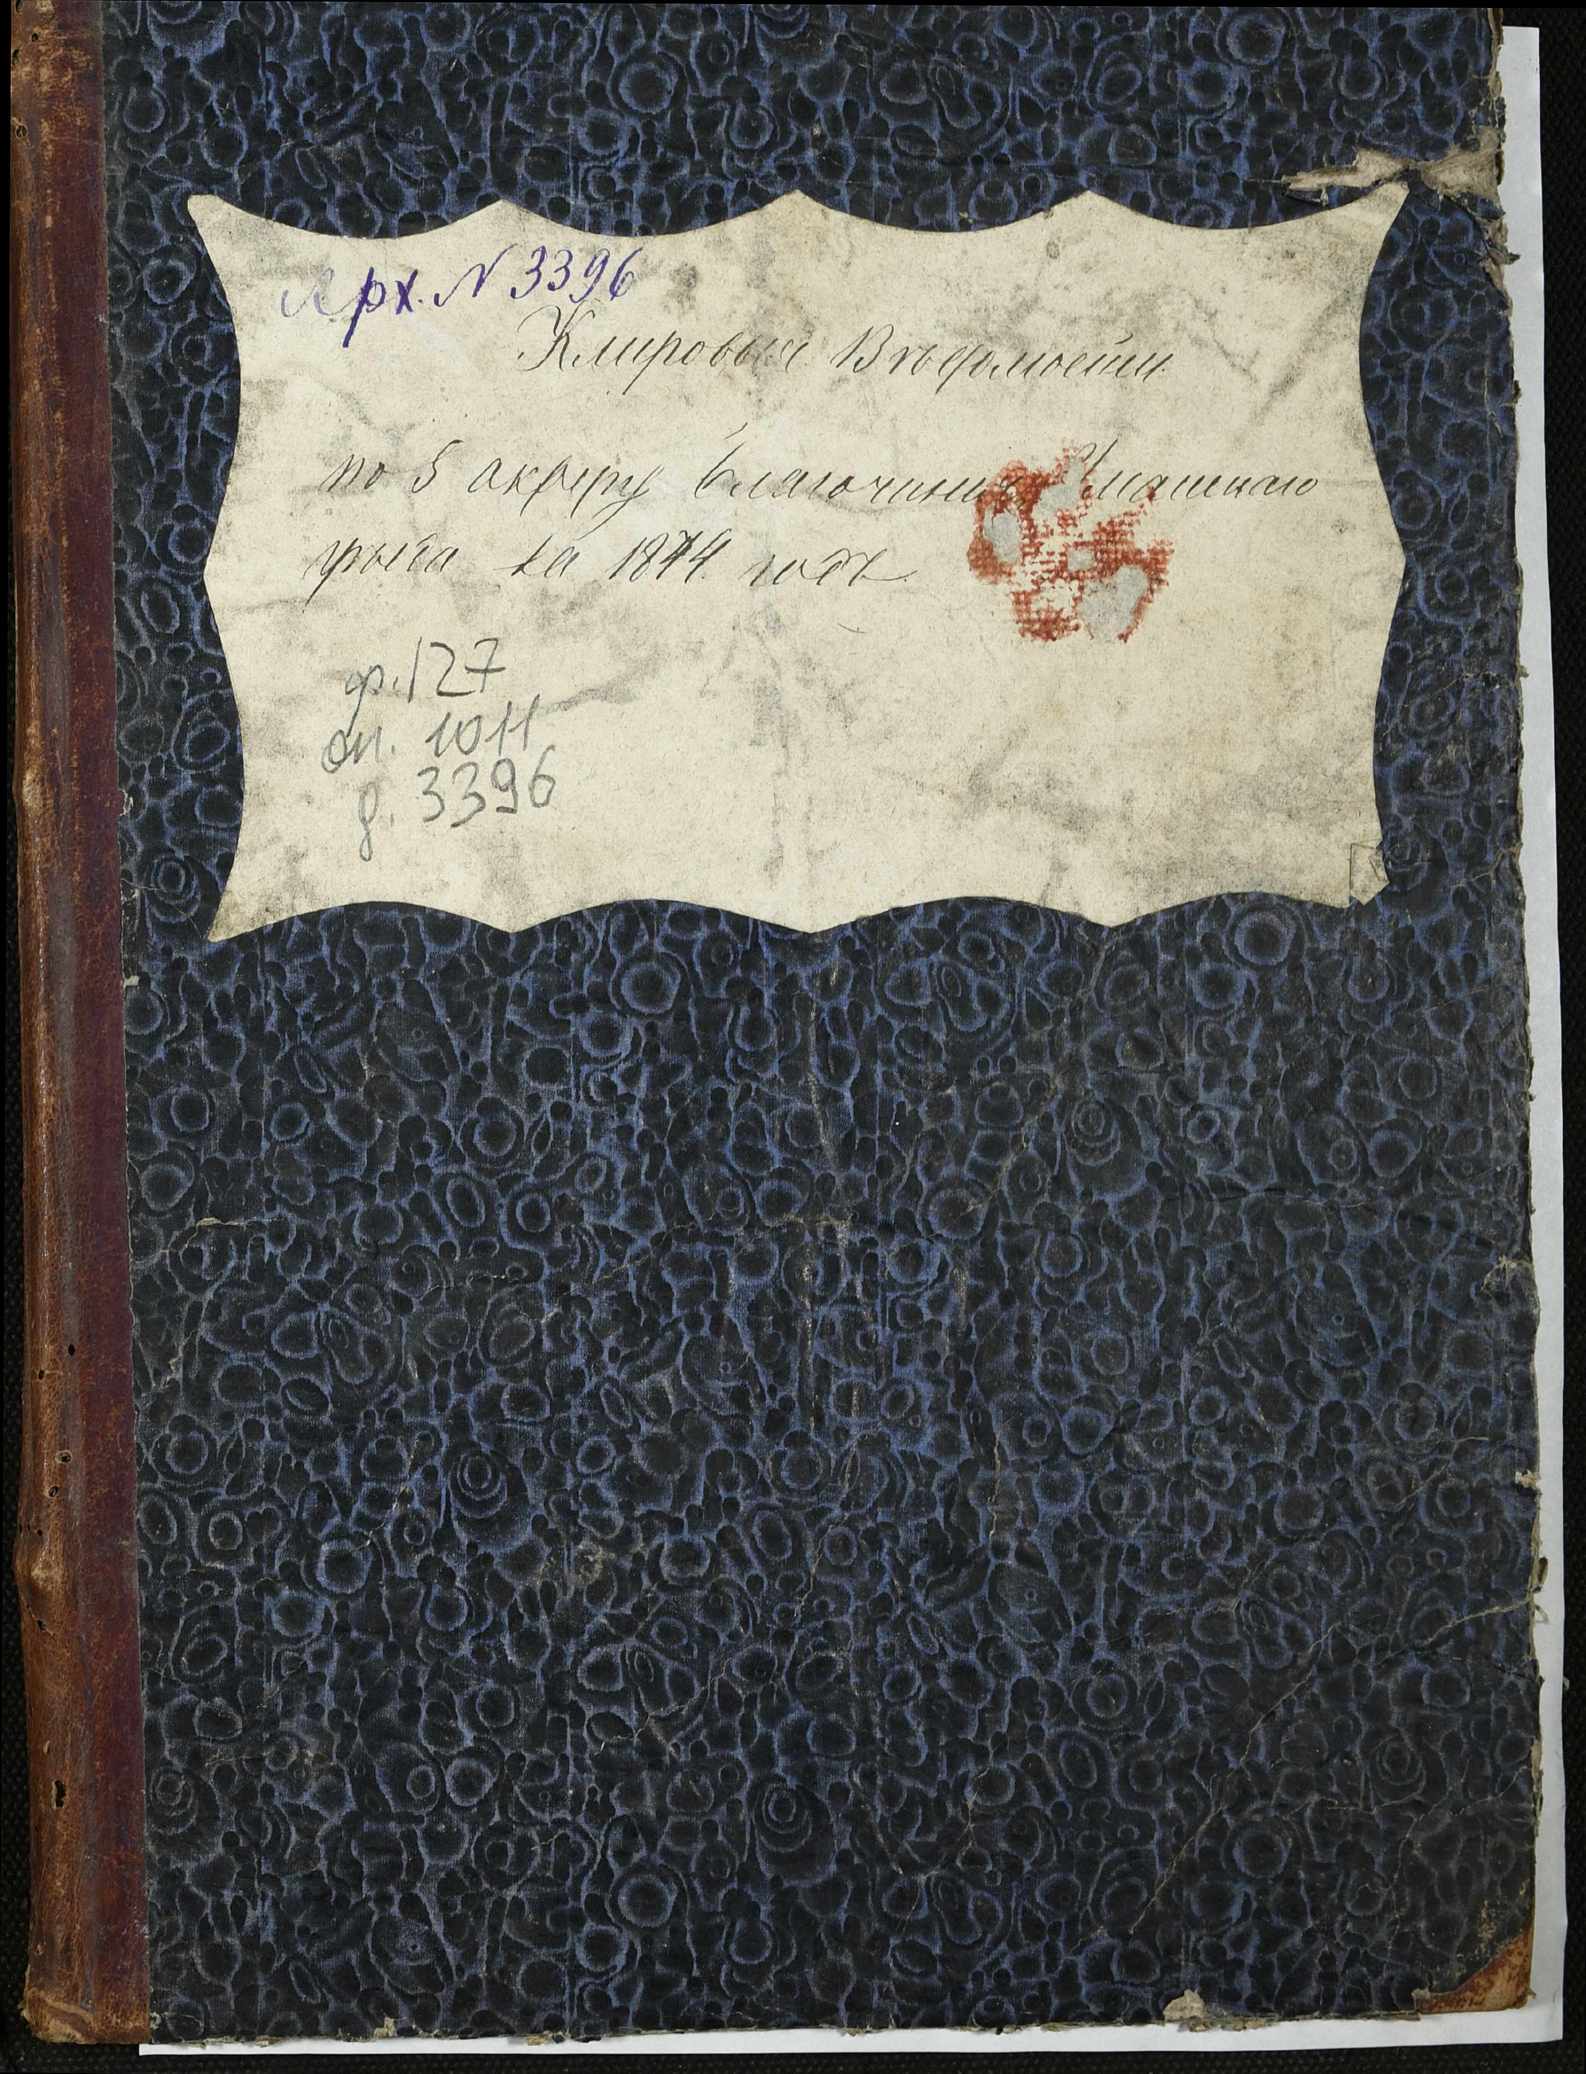 Арх. N 3396
Клировыя Вѣдомости
по 5 округу благочинія Уманскаго
уѣзда за 1874 годъ
ф. 127
оп. 1011
д. 3396